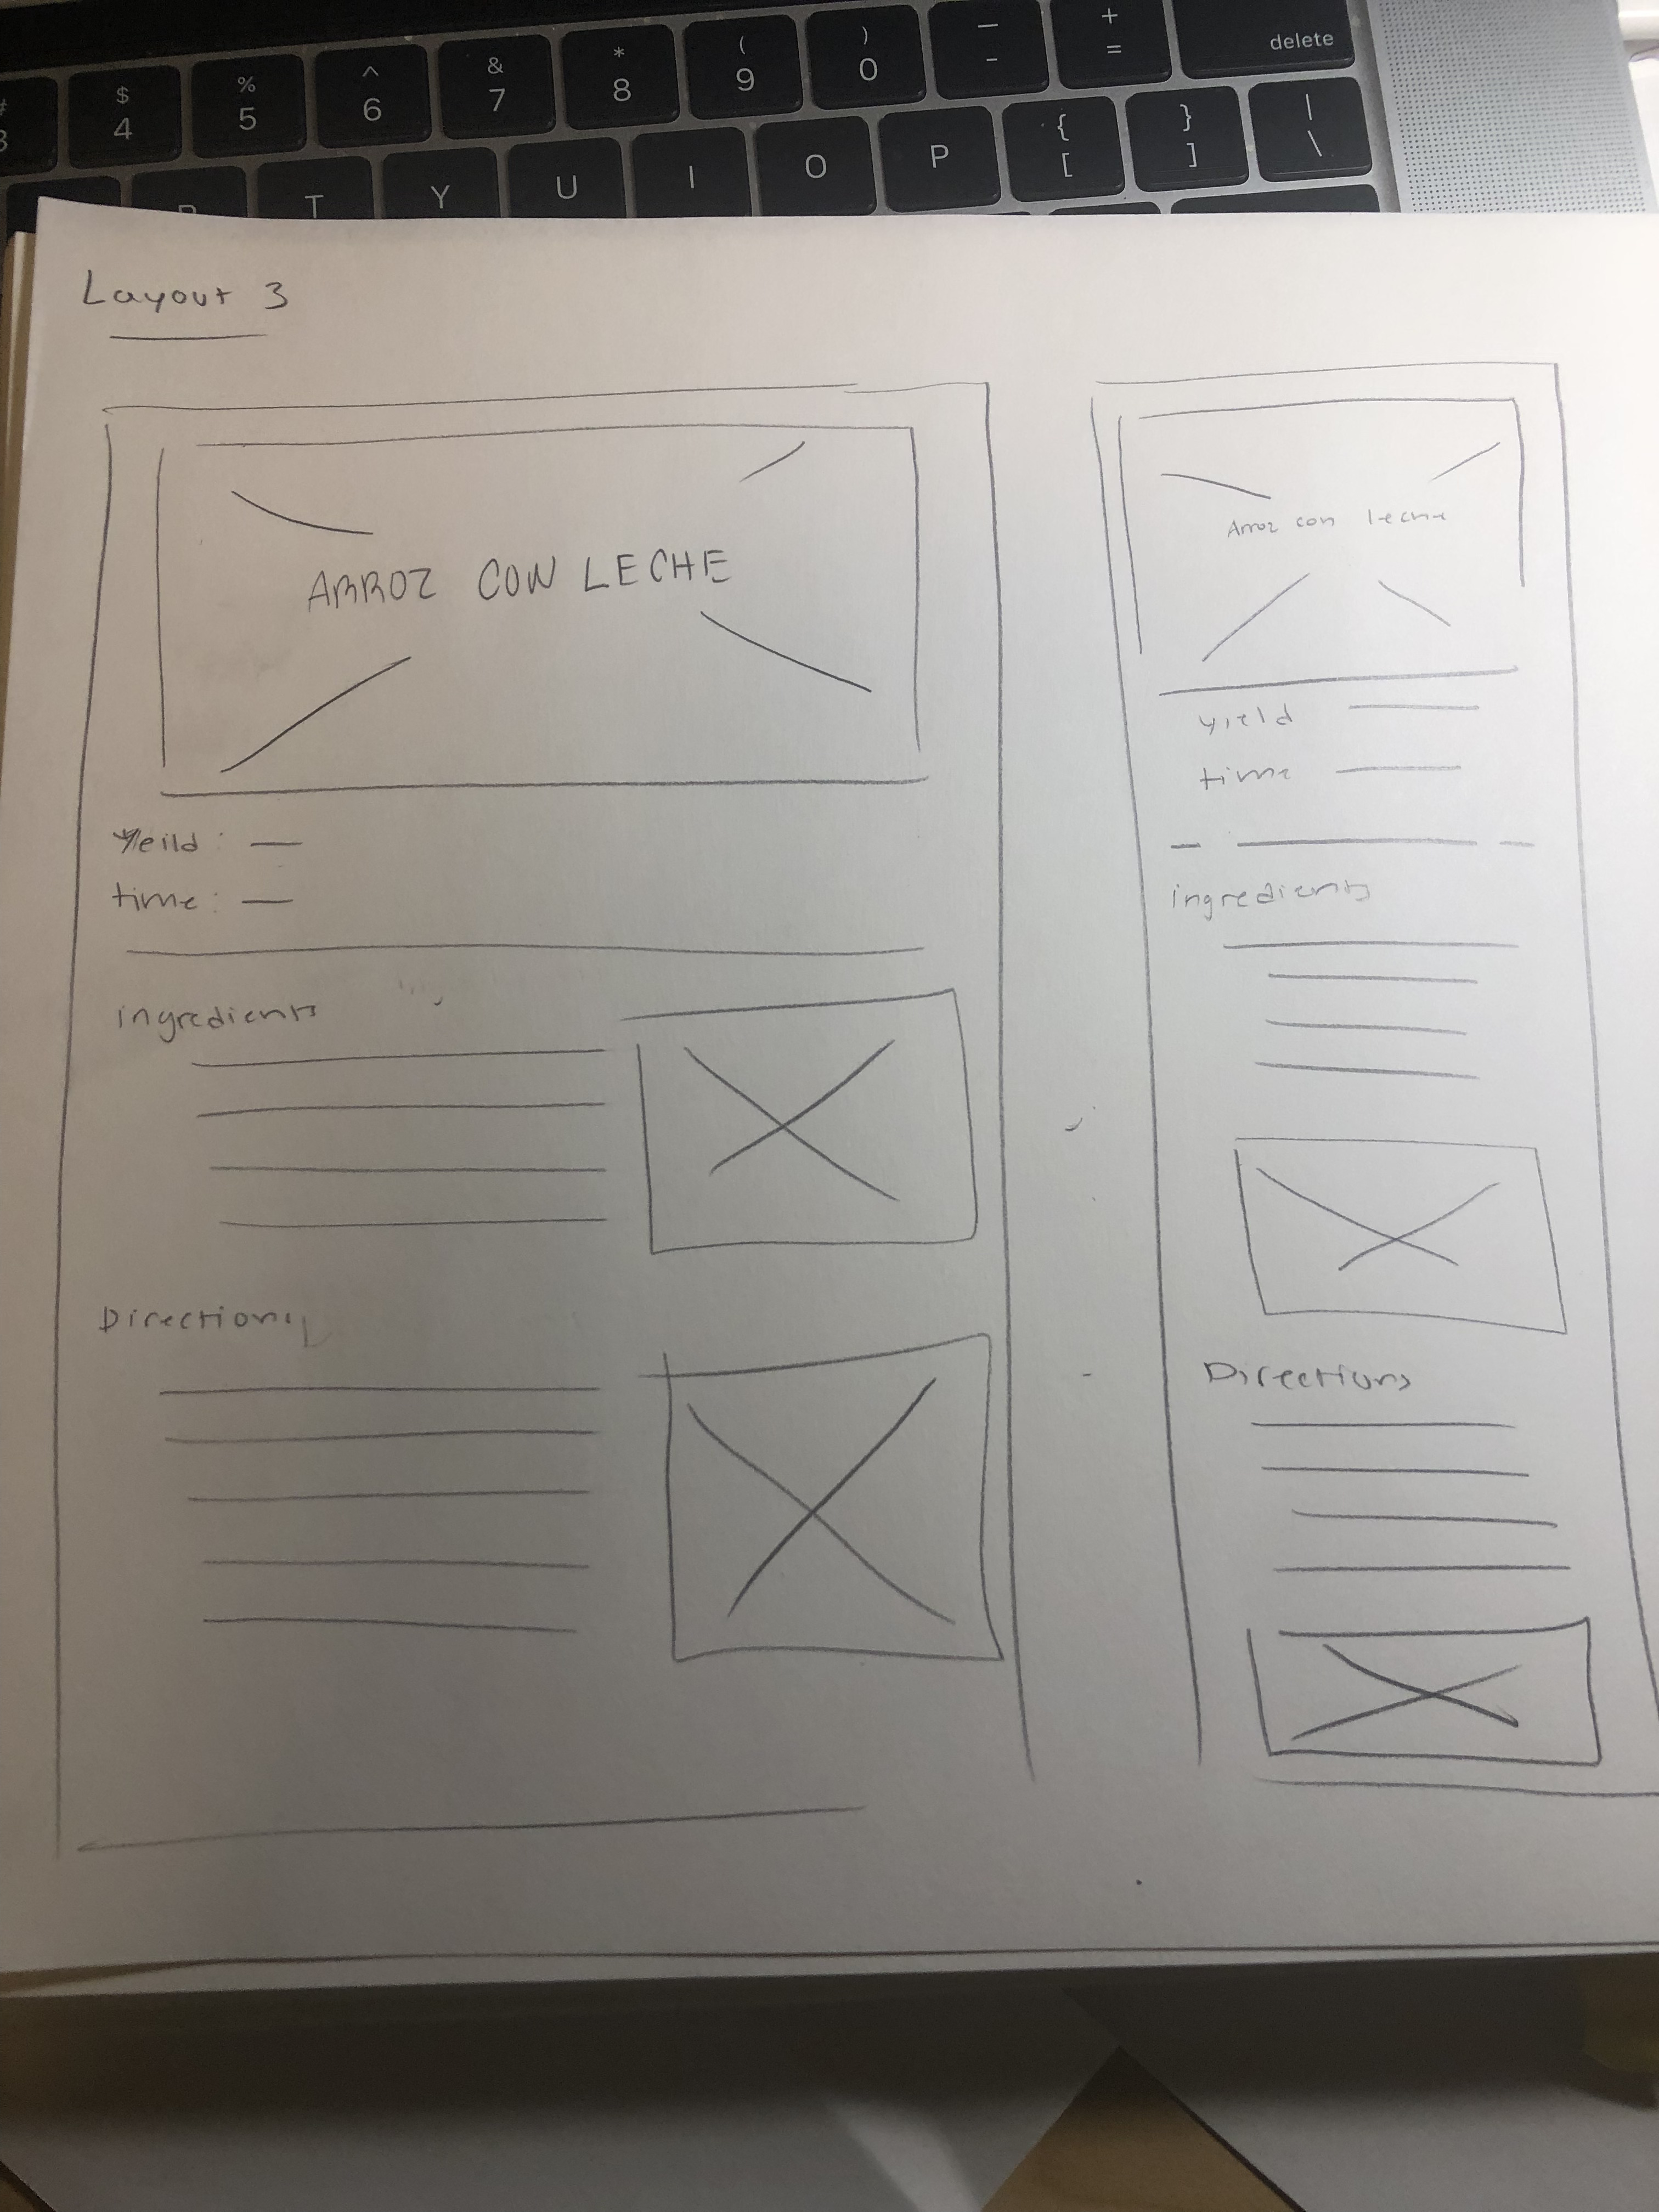 # 3
$ 4
% 5
^ 6
& 7
* 8
( 9
) 0
— -
+ =
delete
R
T
Y
U
I
O
P
{ [
} ]
| \
Layout 3
ARROZ CON LECHE
Yeild : —
time : —
ingredients
Directions
Arroz con leche
yield
time
ingredients
Directions